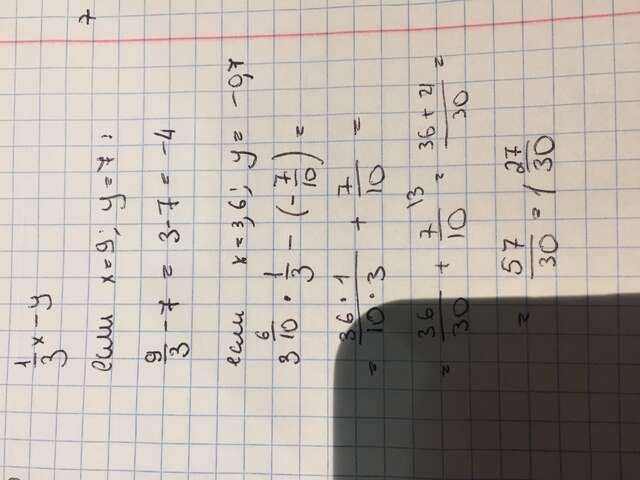 7
1/3 x - y
если x=9; y=7:
9/3 - 7 = 3-7 = -4
если x=3,6; y= -0,7
3 6/10 · 1/3 - (-7/10) =
= 36·1/10·3 + 7/10 =
= 36/30 + 7/10 \3 = 36+21/30 =
= 57/30 = 1 27/30